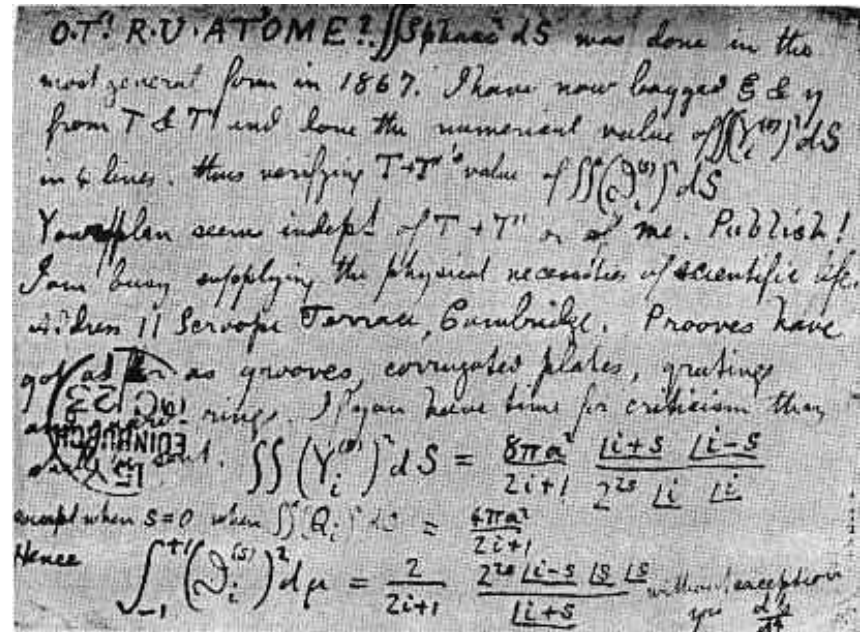 O.T'! R.U. AT 'OME? ∬Spharc² dS was done in the
most general form in 1867. I have now bagged ξ & η
from T & T' and done the numerical value of ∬(Yᵢ⁽ˢ⁾)² dS
in 4 lines. thus verifying T+T''s value of ∬(ϑᵢ⁽ˢ⁾)² dS
Your plan seems indept of T + T' or of me. Publish!
I am busy supplying the physical necessities of scientific life.
Address 11 Scroope Terrace, Cambridge. Prooves have
got as far as grooves, corrugated plates, gratings
rings. If you have time for criticism they
∬(Yᵢ⁽ˢ⁾)² dS = 8πa²/2i+1 |i+s |i-s/2²ˢ |i |i
except when s=0 when ∬(Qᵢ)² dS = 4πa²/2i+1
Hence ∫₋₁⁺¹(ϑᵢ⁽ˢ⁾)² dμ = 2/2i+1 2²ˢ |i-s |s |s/|i+s without exception
yrs dp/dt
EDINBURGH